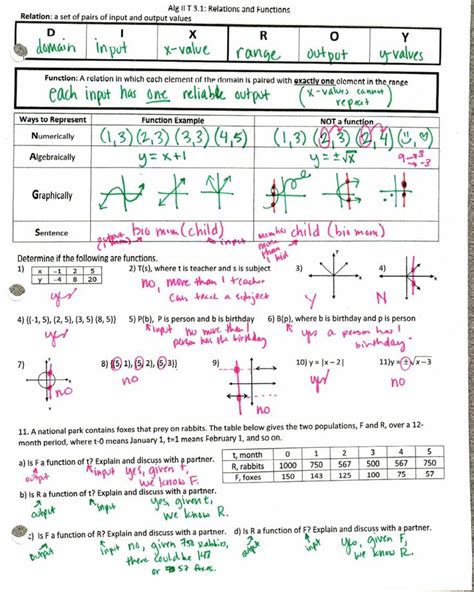 Alg II T 3.1: Relations and Functions
Relation: a set of pairs of input and output values
D I X R O Y
domain input x-value range output y-values
Function: A relation in which each element of the domain is paired with exactly one element in the range
each input has one reliable output (x-values cannot repeat)
Ways to Represent Function Example NOT a function
Numerically (1,3) (2,3) (3,3) (4,5) (1,3) (2,3) (2,4) (☺,♡)
Algebraically y = x+1 y = ±√x 9 → 3 → -3
Graphically
Sentence output bio mom (child) input child (bio mom) more than 1 kid
Determine if the following are functions.
1) x -1 2 5
y -4 8 20
yes
2) T(s), where t is teacher and s is subject
no, more than 1 teacher
can teach a subject
3) Y
4) N
4) {(-1, 5), (2, 5), (3, 5) (8, 5)}
yes
5) P(b), P is person and b is birthday
input no more than 1
person has the birthday
6) B(p), where b is birthday and p is person
yes a person has 1
birthday.
7) no
8) {(5, 1), (5, 2), (5, 3)}
no
9) no
10) y = |x – 2|
yes
11) y = ±√x – 3
no
11. A national park contains foxes that prey on rabbits. The table below gives the two populations, F and R, over a 12-
month period, where t-0 means January 1, t=1 means February 1, and so on.
t, month 0 1 2 3 4 5
R, rabbits 1000 750 567 500 567 750
F, foxes 150 143 125 100 75 57
a) Is F a function of t? Explain and discuss with a partner.
output input yes, given t,
we know F.
b) Is R a function of t? Explain and discuss with a partner.
output input yes, given t,
we know R.
c) Is F a function of R? Explain and discuss with a partner.
output input no, given 750 rabbits,
there could be 143
or 57 foxes.
d) Is R a function of F? Explain and discuss with a partner.
output input yes, given F,
we know R.